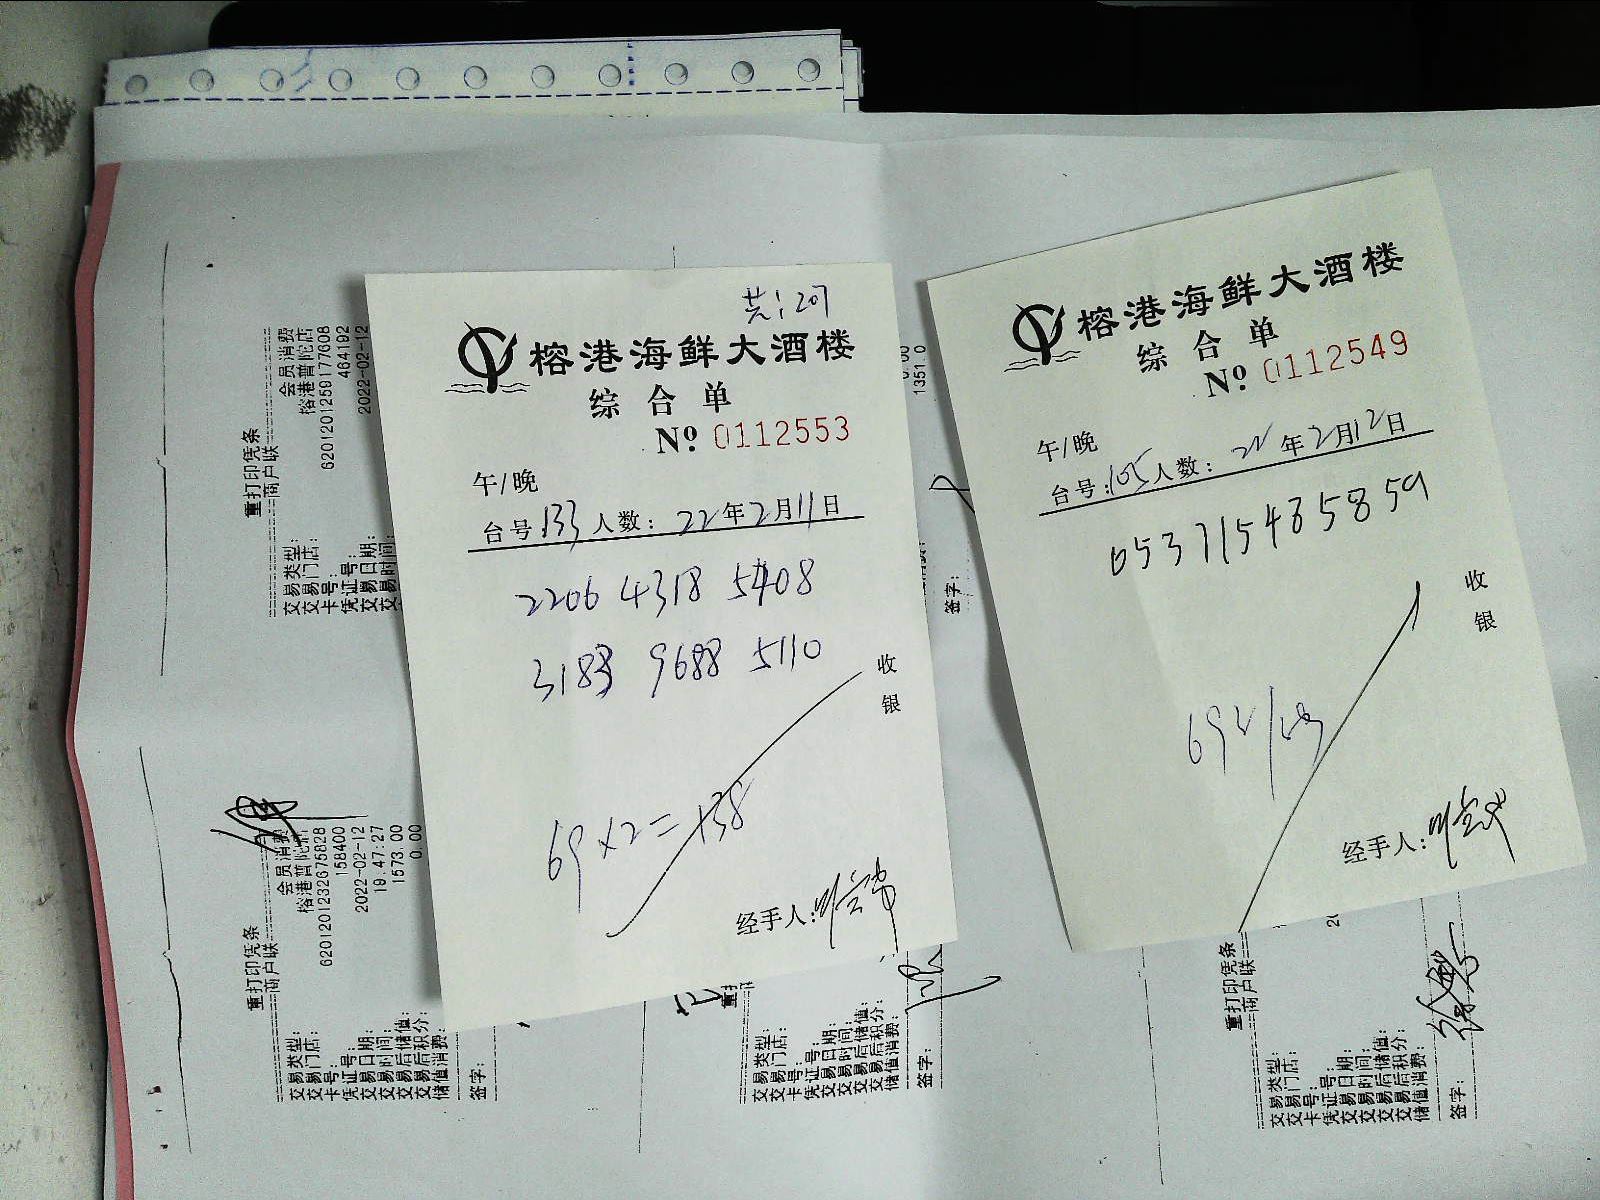 共:207
榕港海鲜大酒楼
综合单
Nº 0112553
午/晚
台号133人数: 22年2月11日
2206 4318 5408
3183 9688 5110
收
银
69×2=138
经手人:
榕港海鲜大酒楼
综合单
Nº 0112549
午/晚
台号:105人数: 22年2月12日
053715485859
收
银
经手人:
重打印凭条
商户联
交易类型: 会员消费
交易门店: 榕港普陀店
卡号: 6201201259177608
凭证号: 464192
交易日期: 2022-02-12
交易时间:
1351.0
签字:
重打印凭条
商户联
交易类型: 会员消费
交易门店: 榕港普陀店
卡号: 6201201232675828
凭证号: 158400
交易日期: 2022-02-12
交易时间: 19:47:27
交易后储值: 1573.00
交易后积分: 0.00
储值消费:
签字:
重打
交易类型:
交易门店:
卡号:
凭证号:
交易日期:
交易时间:
交易后储值:
交易后积分:
储值消费:
签字:
重打印凭条
商户联
交易类型:
交易门店:
卡号:
凭证号:
交易日期:
交易时间:
交易后储值:
交易后积分:
储值消费:
签字: